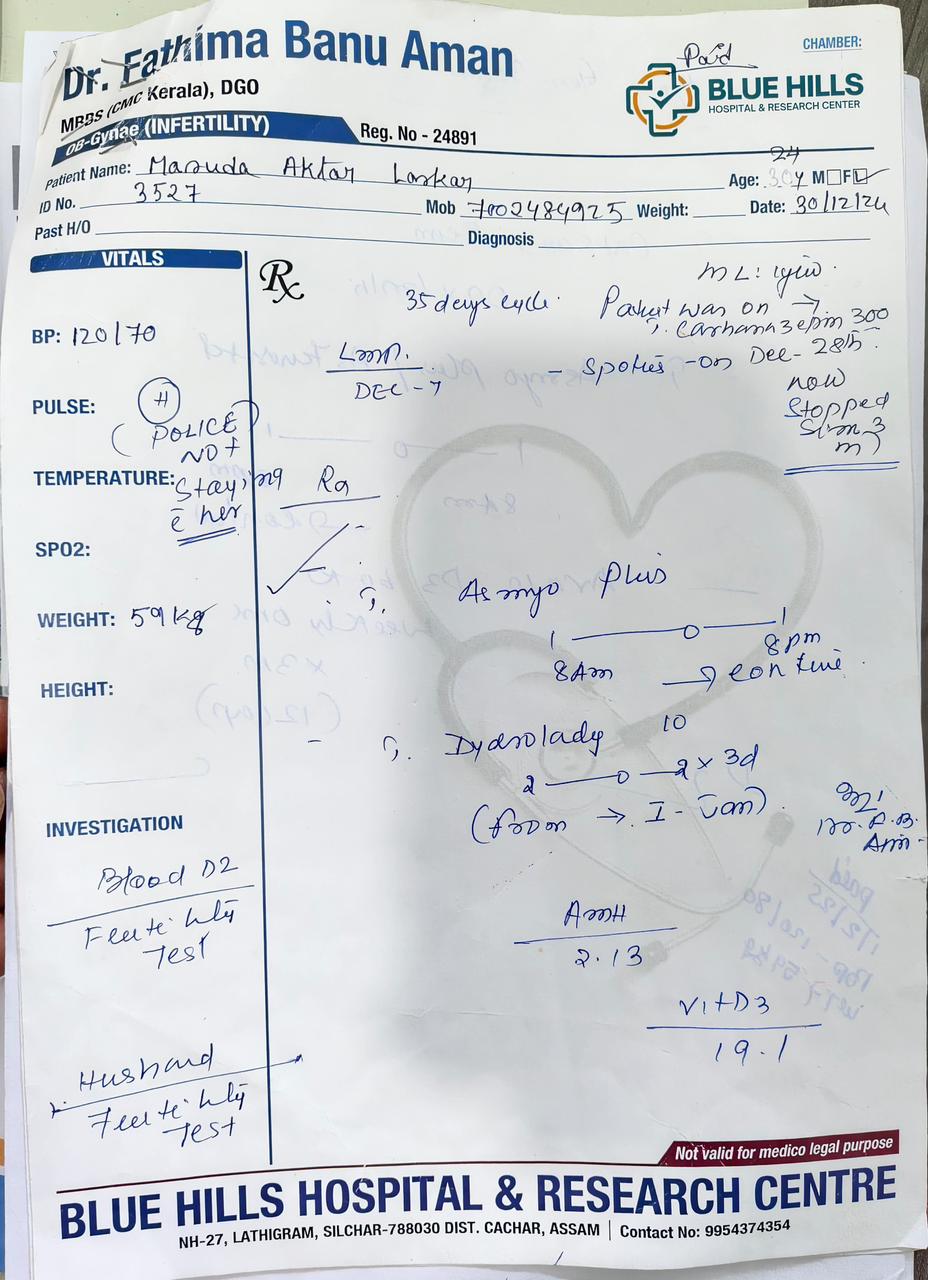 Dr. Fathima Banu Aman
MBBS (CMC Kerala), DGO
OB-Gynae (INFERTILITY)
Reg. No - 24891
Paid
CHAMBER:
BLUE HILLS
HOSPITAL & RESEARCH CENTER
Patient Name: Masuda Aktar Laskar
24
Age: 30y M F
ID No. 3527 Mob 7002484925 Weight: Date: 30/12/24
Past H/O Diagnosis
VITALS
Rx
35 days cycle.
ML: 1yr
Patient was on →
300
LMP.
DEC-7
- on Dec-28th.
now
Stopped
BP: 120/70
PULSE: H
(POLICE)
NOT
TEMPERATURE: Staying
ē her
SPO2:
WEIGHT: 59kg
HEIGHT:
Asmyo Plus
1 — 0 — 1
8Am 8pm
→ continue.
Dydrolady 10
2 — 0 — 2 x 3d
(from → 1-Jan)
INVESTIGATION
Blood D2
Fertility
Test
Husband
Fertility
Test
AMH
2.13
Vit D3
19.1
Not valid for medico legal purpose
BLUE HILLS HOSPITAL & RESEARCH CENTRE
NH-27, LATHIGRAM, SILCHAR-788030 DIST. CACHAR, ASSAM | Contact No: 9954374354